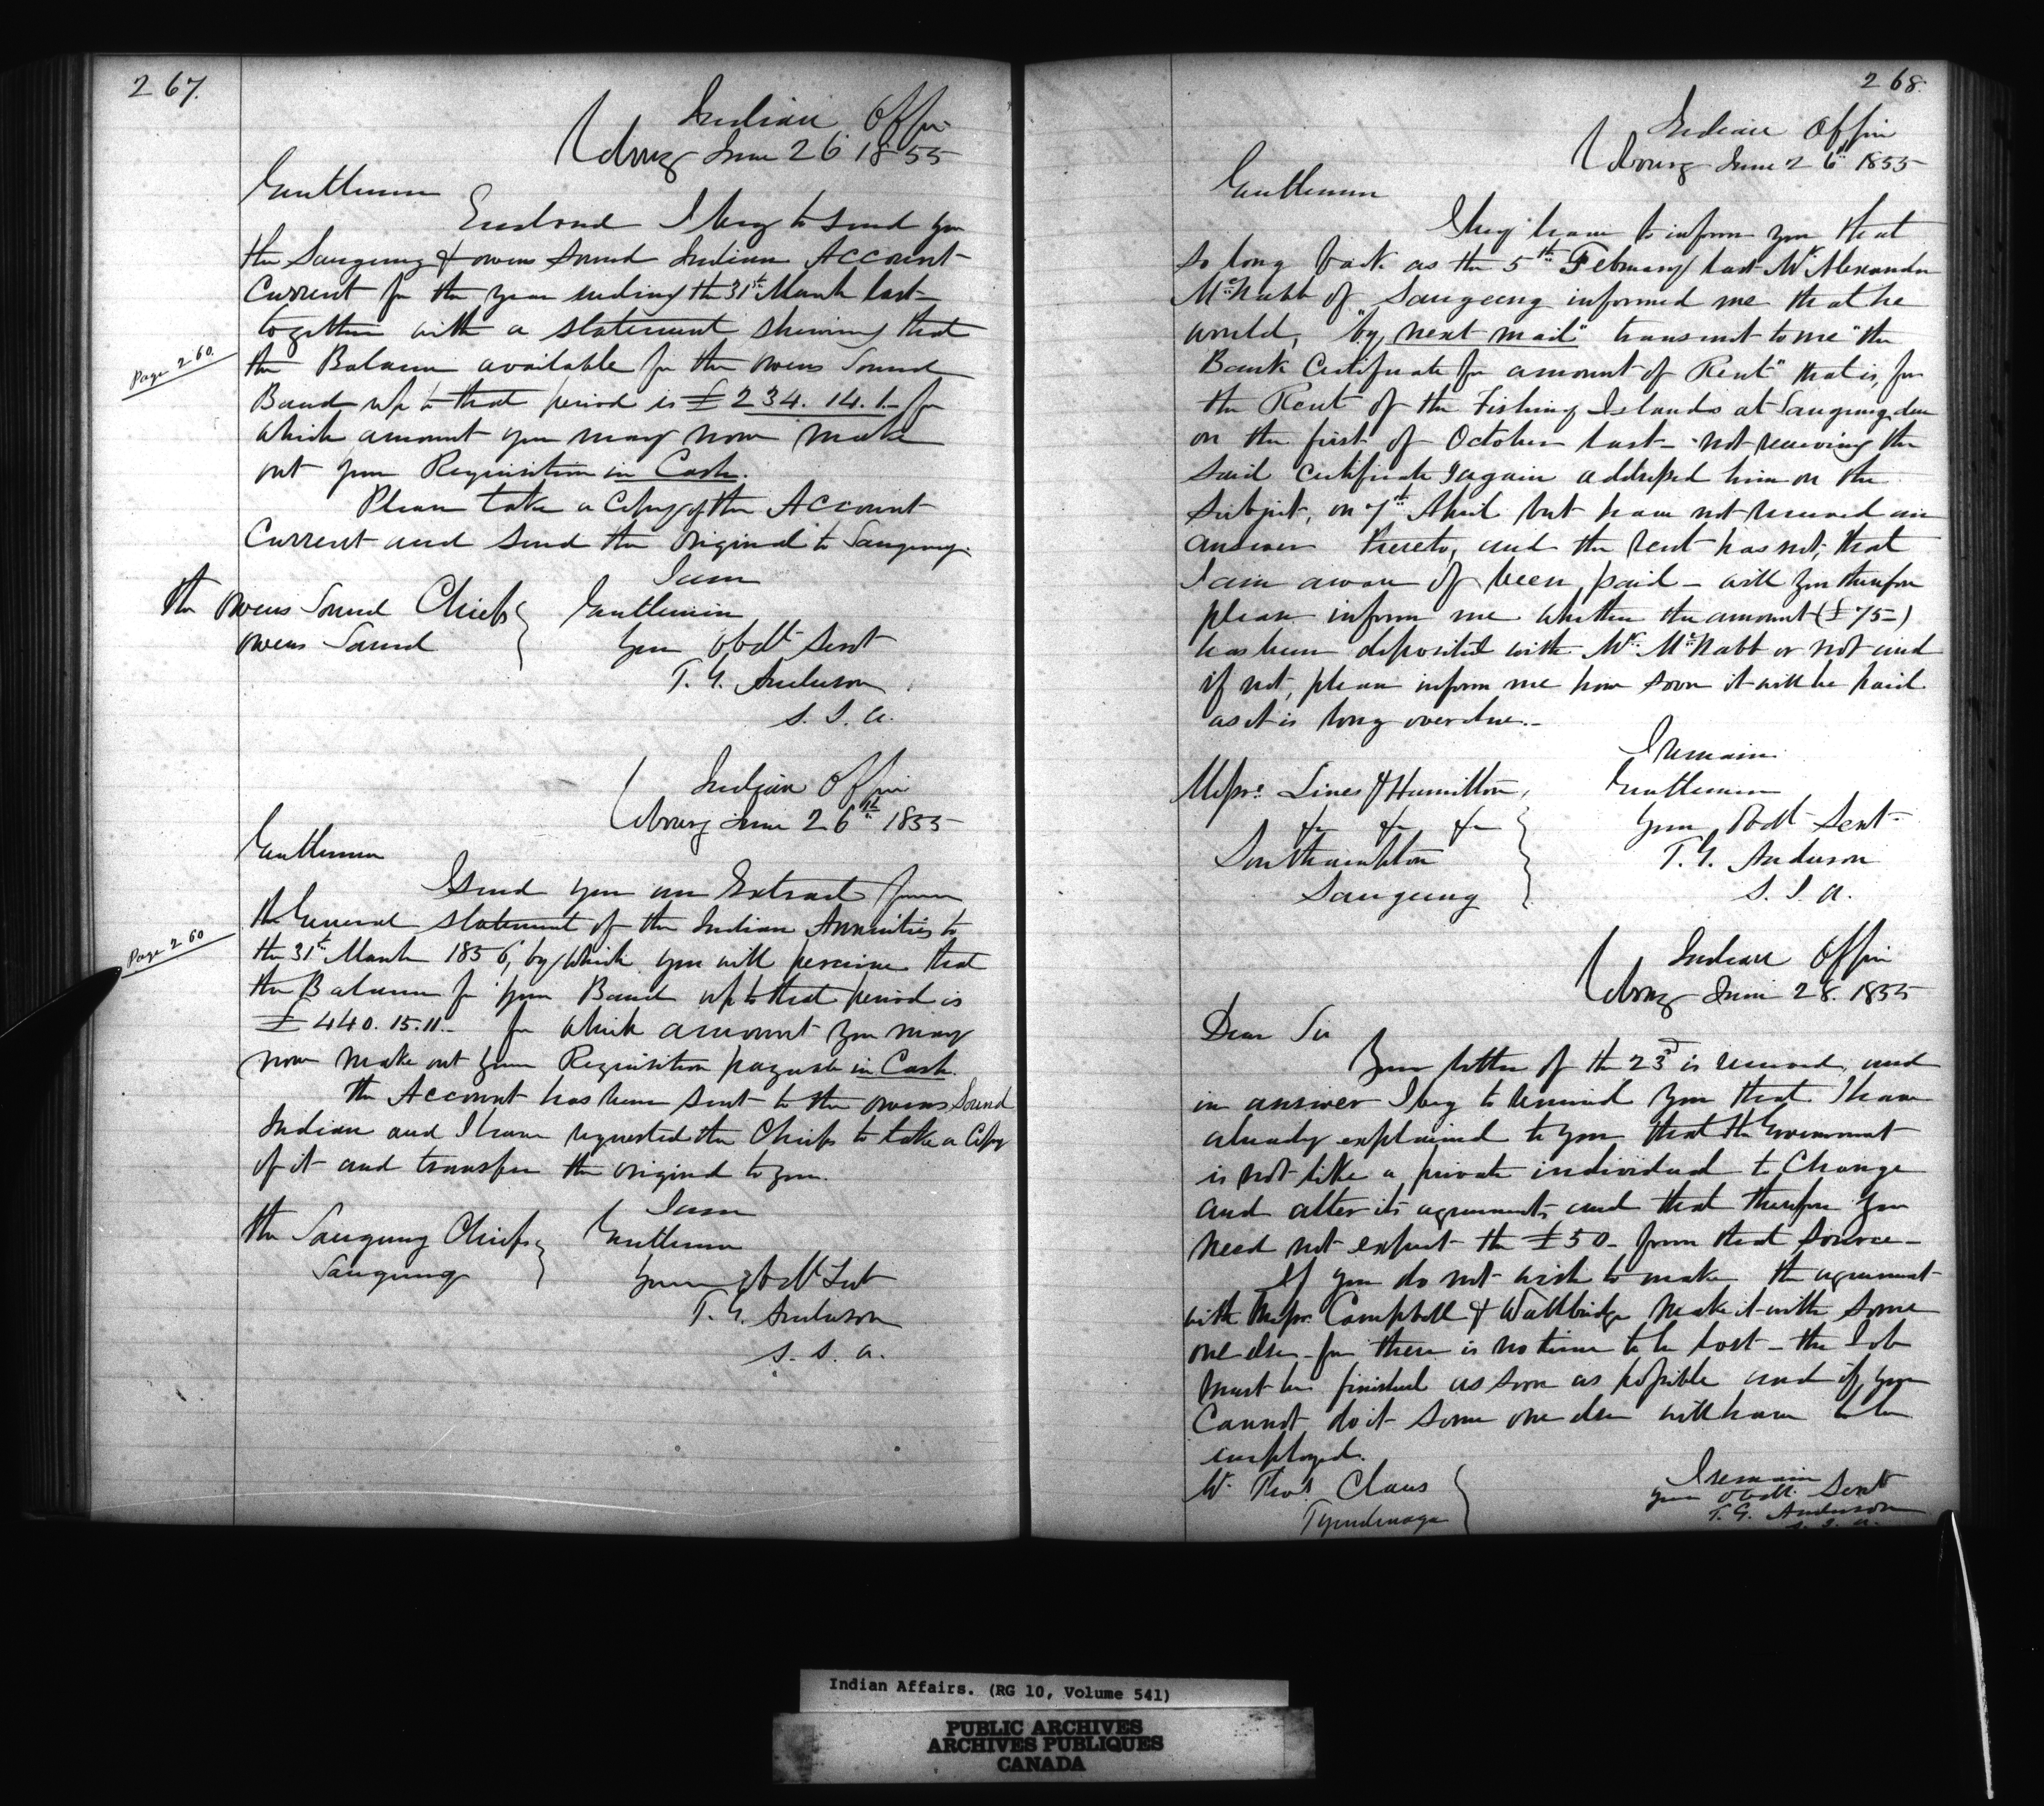 267.
Indian Office
Cobourg June 26 1855
Gentlemen
Enclosed I beg to send you
the Saugeeng & Owens Sound Indian Account
Current for the year ending the 31st March last
together with a statement shewing that
Page 260.
the Balance available for the Owens Sound
Band up to that period is £234. 14. 1. for
which amount you may now make
out your Requisition in Cash.
Please take a Copy of the Account
Current and send the Original to Saugeeng.
I am
Gentlemen
Your Obdt Servt
T. G. Anderson
S. I. A.
The Owens Sound Chiefs
Owens Sound
Indian Office
Cobourg June 26th 1855
Gentlemen
I send you an Extract from
the General statement of the Indian Annuities to
Page 260
the 31st March 1856, by which you will perceive that
the Balance for your Band up to that period is
£440. 15. 11. for which amount you may
now make out your Requisition payable in Cash.
The Account has been sent to the Owens Sound
Indian and I have requested the Chiefs to take a Copy
of it and transfer the original to you.
I am
Gentlemen
Your Obdt Svt
T. G. Anderson
S. I. A.
The Saugeeng Chiefs
Saugeeng
268.
Indian Office
Cobourg June 26th 1855
Gentlemen
I beg leave to inform you that
so long back as the 5th February last Mr Alexander
McNabb of Saugeeng informed me that he
would, "by next mail" transmit to me "the
Bank Certificate for amount of Rent" that is for
the Rent of the Fishing Islands at Saugeeng due
on the first of October last - not receiving the
said certificate I again addressed him on the
subject, on 7th April but have not received an
answer thereto, and the rent has not, that
I am aware of been paid - will you therefore
please inform me whether the amount (£75-)
has been deposited with Mr McNabb or not and
if not, please inform me how soon it will be paid
as it is long over due.-
I remain
Gentlemen
Your Obdt Servt
T. G. Anderson
S. I. A.
Messrs Lines & Hamilton,
&c &c &c
Southampton
Saugeeng
Indian Office
Cobourg June 28. 1855
Dear Sir
Your letter of the 23rd is received, and
in answer I beg to remind you that I have
already explained to you that the Government
is not like a private individual to Change
and alter its agreements and that therefore you
need not expect the £50- from that source-
If you do not wish to make the agreement
with Messrs Campbell & Wallbridge make it with some
one else - for there is no time to be lost - the Job
must be finished as soon as possible and if you
Cannot do it some one else will have to be
employed.
I remain
Your Obdt. Servt
T. G. Anderson
S. I. A.
Mr Thos Claus
Tyendenaga
Indian Affairs. (RG 10, Volume 541)
PUBLIC ARCHIVES
ARCHIVES PUBLIQUES
CANADA